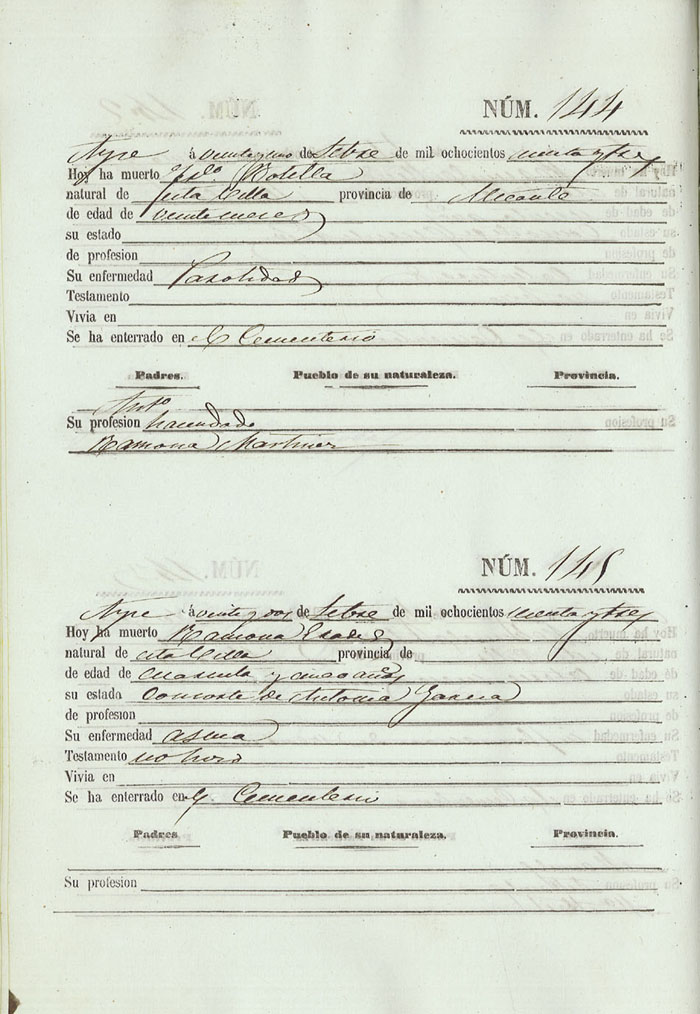 NÚM. 144
Aspe á veinte y uno de Sebre de mil ochocientos
Hoy ha muerto Botella
natural de esta Villa provincia de Alicante
de edad de veinte meses
su estado
de profesion
Su enfermedad
Testamento
Vivia en
Se ha enterrado en el Cementerio
Padres. Pueblo de su naturaleza. Provincia.
Anto
Su profesion hacendado
Ramona Martinez
NÚM. 145
Aspe á veinte y dos de Sebre de mil ochocientos
Hoy ha muerto Ramona
natural de esta Villa provincia de
de edad de cuarenta y cinco años
su estado Consorte de Antonio Garcia
de profesion
Su enfermedad asma
Testamento no hizo
Vivia en
Se ha enterrado en el Cementerio
Padres. Pueblo de su naturaleza. Provincia.
Su profesion